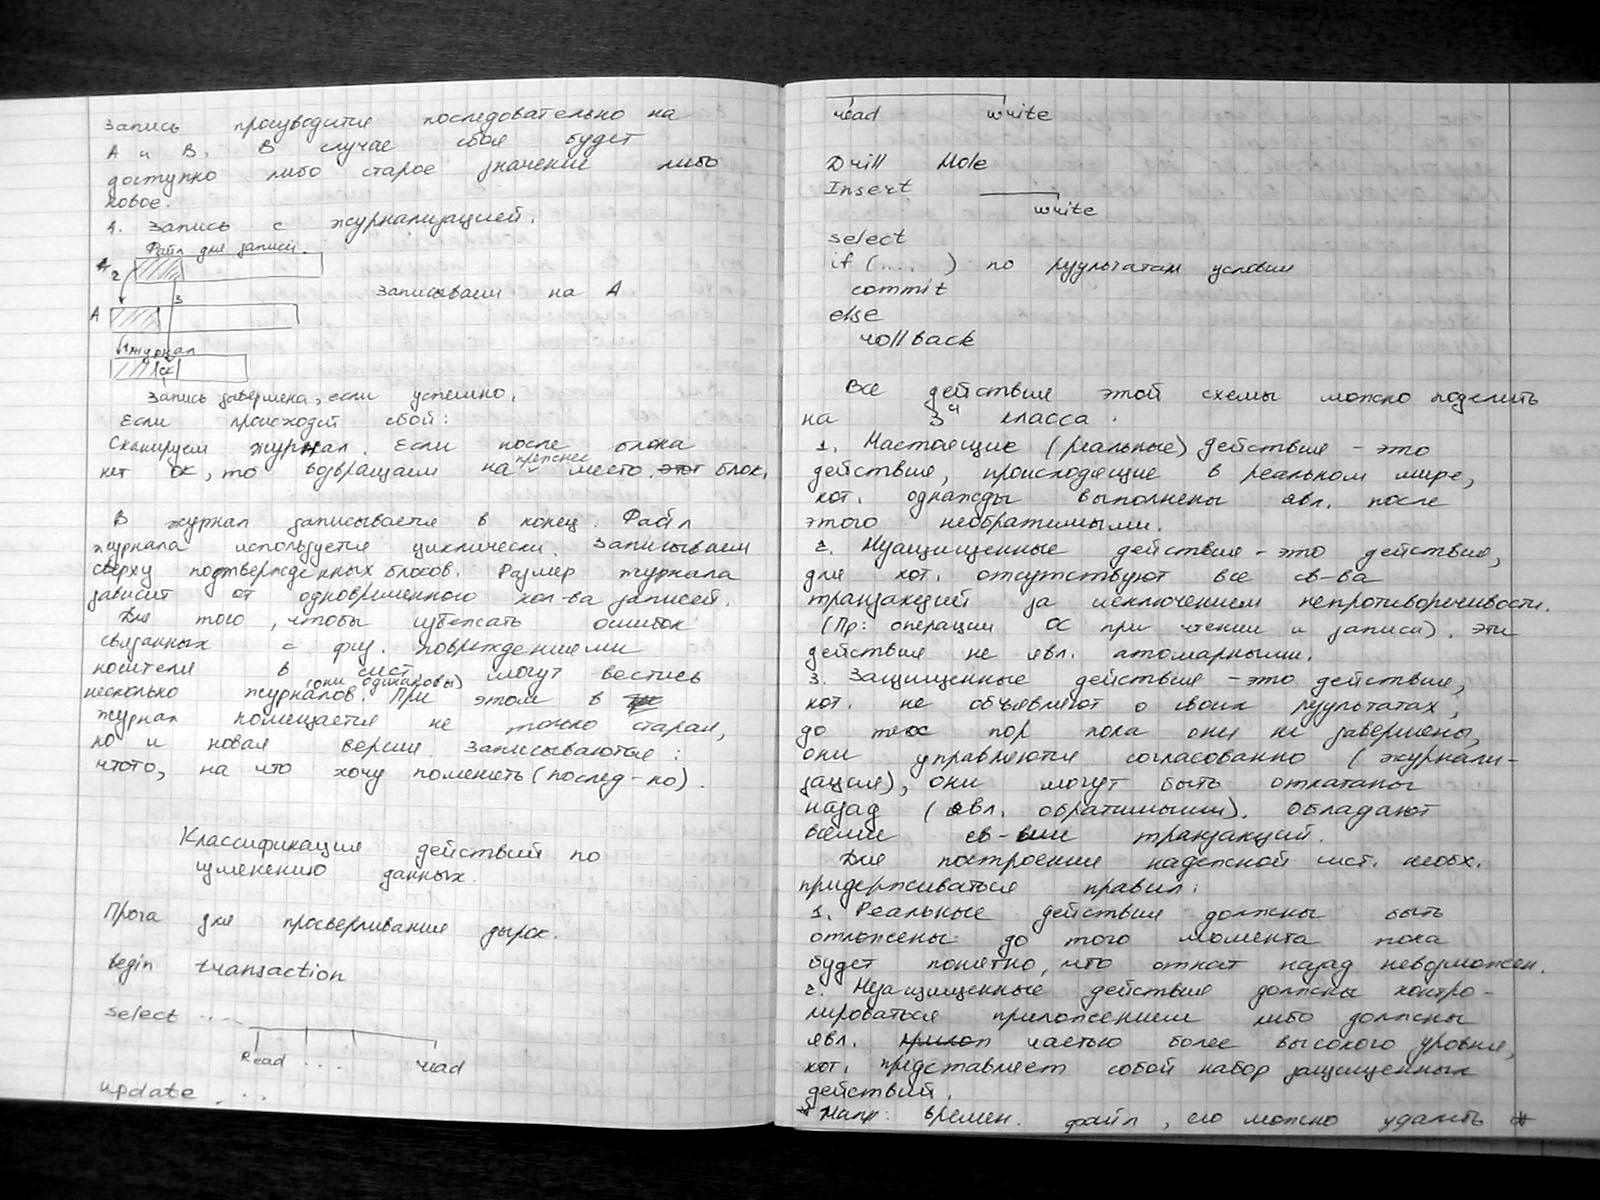 Запись производится последовательно на
А и В. В случае сбоя будет
доступно либо старое значение либо
новое.
4. Запись с журнализацией.
Файл для записи.
А
2
3
Записываем на А
А
1 журнал
ОК
Запись завершена, если успешно.
Если происходит сбой:
Сканируем журнал. Если после блока
прежнее
нет ОК, то возвращаем на место этот блок.
В журнал записывается в конец. Файл
журнала используется циклически. Записываем
сверху подтвержденных блоков. Размер журнала
зависит от одновременного кол-ва записей.
Для того, чтобы избежать ошибок
связанных с физ. повреждениями
носителя в сист. могут вестись
(они одинаковы)
несколько журналов. При этом в
журнал помещается не только старая,
но и новая версия записываются:
чтото, на что хочу поменять (послед-но).
Классификация действий по
изменению данных.
Прога для просверливания дырок.
Begin transaction
select ....
Read .... read
update ...
read write
Drill Hole
Insert
write
select
if (.... ) по результатам условия
commit
else
rollback
Все действия этой схемы можно поделить
на 3 класса.
1. Настоящие (реальные) действия – это
действия, происходящие в реальном мире,
кот. однажды выполнены явл. после
этого необратимыми.
2. Незащищенные действия – это действия,
для кот. отсутствуют все св-ва
транзакций за исключением непротиворечивости.
(Пр: операции ОС при чтении и записи). Эти
действия не явл. атомарными.
3. Защищенные действия – это действия,
кот. не объявляют о своих результатах,
до тех пор пока они не завершены,
они управляются согласованно (журнали-
зация), они могут быть откатаны
назад (явл. обратимыми). Обладают
всеми св-вми транзакций.
Для построения надежной сист. необх.
придерживаться правил:
1. Реальные действия должны быть
отложены до того момента пока
будет понятно, что откат назад невозможен.
2. Незащищенные действия должны контро-
лироваться приложением либо должны
явл. частью более высокого уровня,
кот. представляет собой набор защищенных
действий.
* Напр: времен. файл, его можно удалить *